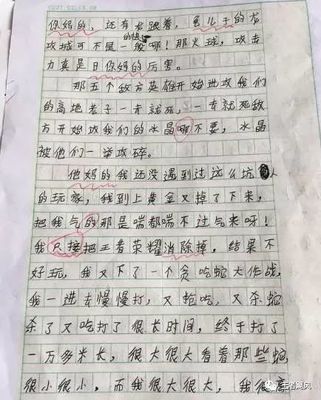 你妈的，还有老跟着，龟儿子的龙
攻城可不是一般的快哪！那火球，攻击
力真是日你妈的厉害。
那五个敌方英雄开始进攻我们
的高地老子一来就死，一来就死敌
方开始攻我们的水晶哪不要，水晶
被他们一举攻碎。
他妈的我还没遇到过这么坑人
的玩家，我到上黄金又掉了下来，
把我气的那是喘都喘不过气来呀！
我只接把王者荣耀消除掉，结果不
好玩，我又下了一个贪吃蛇大作战，
我一进去慢慢打，又抢吃，又杀蛇
杀了又吃打了很长时间，终于打了
一万多米长，很大很大看着那些蛇
很小很小，而我很大很大，我很